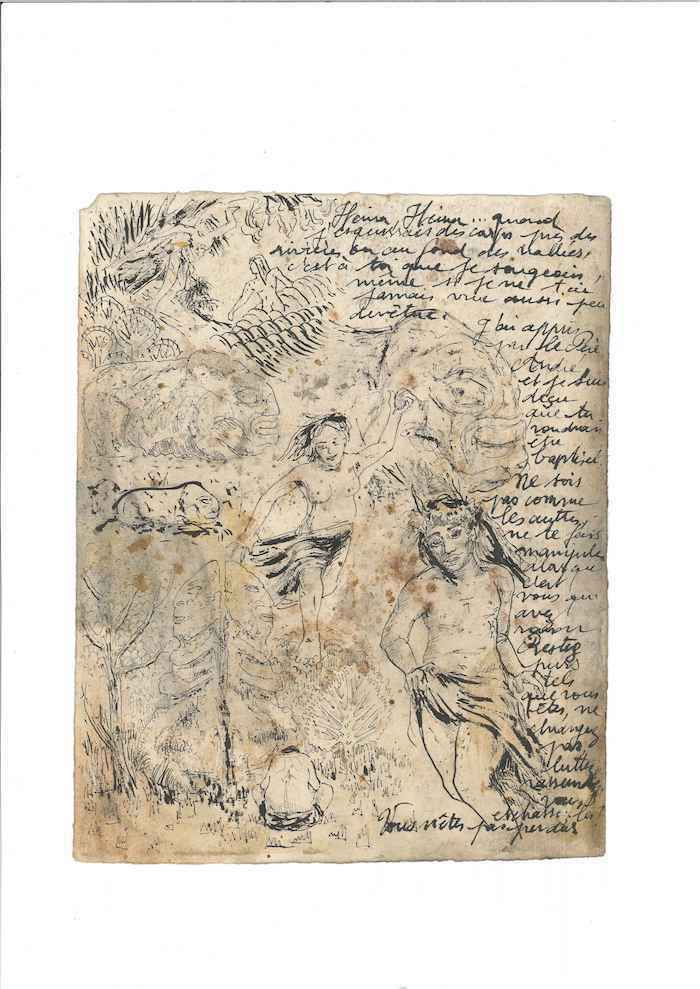 Heina, Heina... quand
j'esquissais des corps près des
rivières ou au fond des vallées,
c'est à toi que je songeais,
même si je ne t'ai
jamais vue aussi peu
devêtue.
J'ai appris
par le Père
André
et je suis
déçu
que tu
voudrais
être
baptisée
Ne sois
pas comme
les autres,
ne te fais
manipuler
alors que
c'est
vous qui
avez
raison
Restez
purs
tels
que vous
êtes, ne
changez
pas
luttez
vous
et chassez-les
Vous n'êtes pas perdus